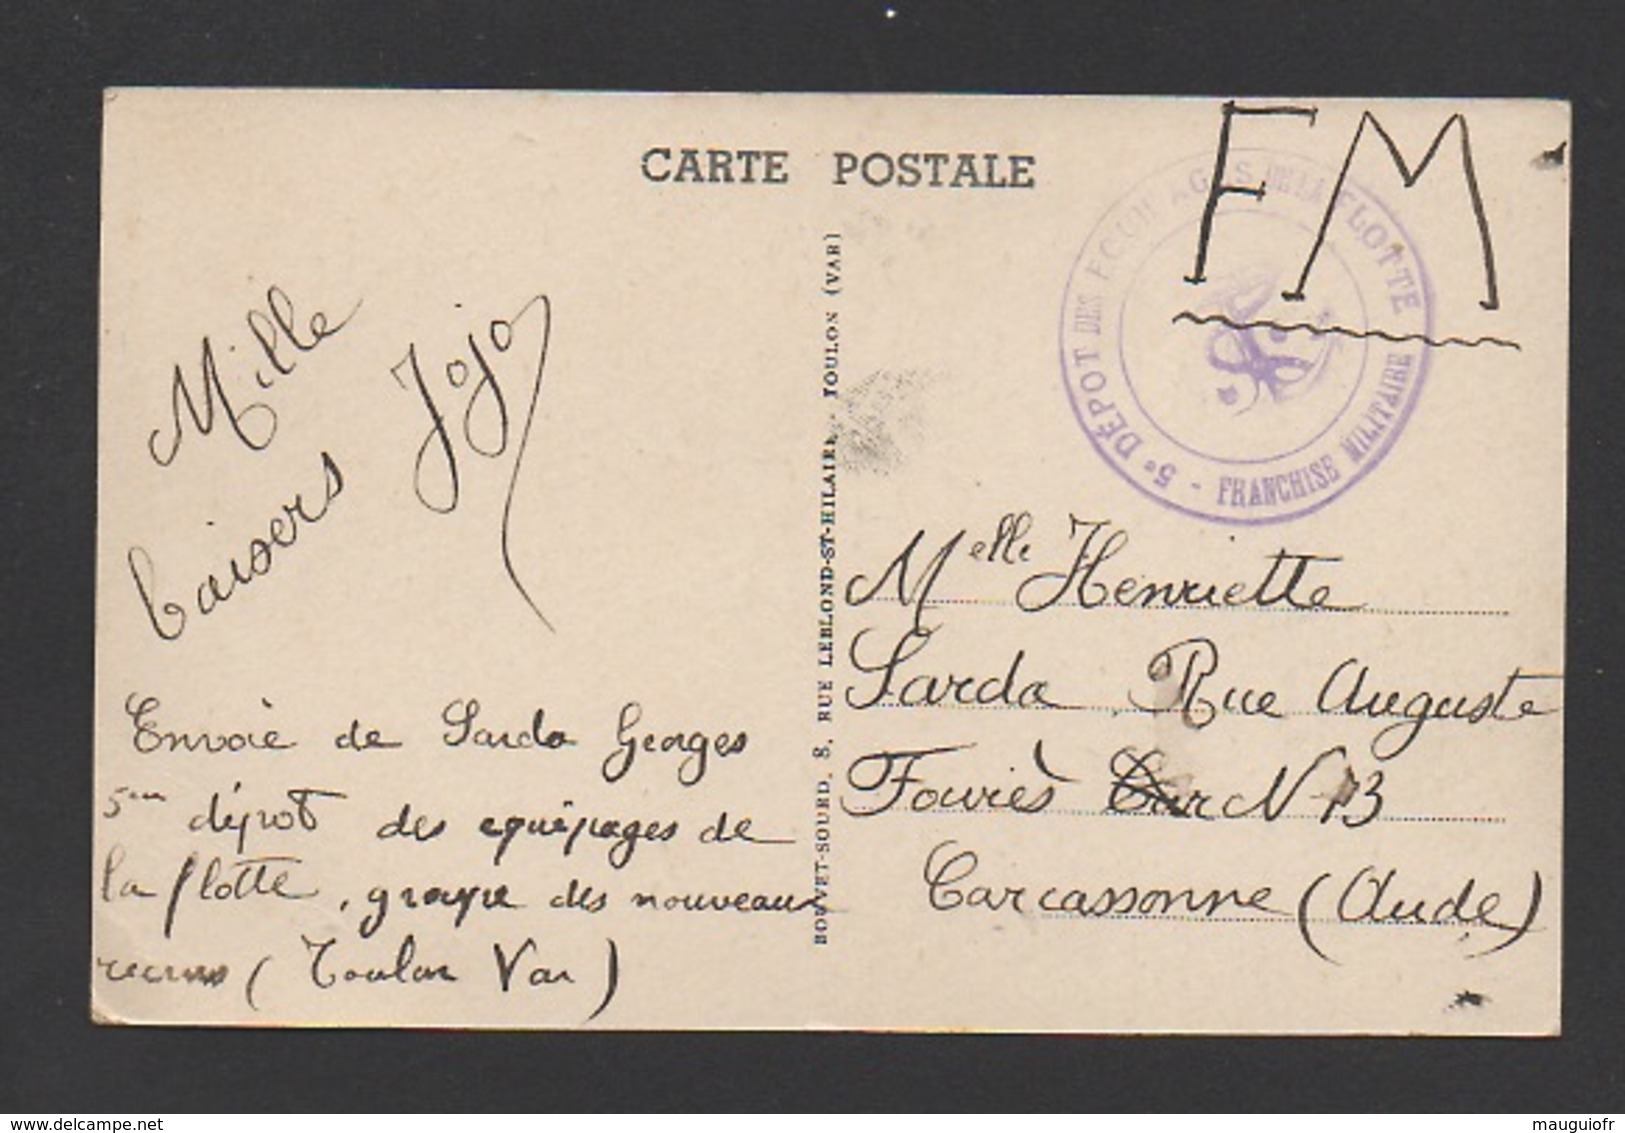 CARTE POSTALE
FM
5e DÉPOT DES ÉQUIPAGES DE LA FLOTTE
- FRANCHISE MILITAIRE
Mille
baisers Jojo
Envoie de Sarda Georges
5me dépot des equipages de
la flotte, groupe des nouveaux
recrus (Toulon Var)
BOUVET-SOURD, 8, RUE LEBLOND-ST-HILAIRE, TOULON (VAR)
Melle Henriette
Sarda Rue Auguste
Fouriès N 13
Carcassonne (Aude)
www.delcampe.net
mauguiofr